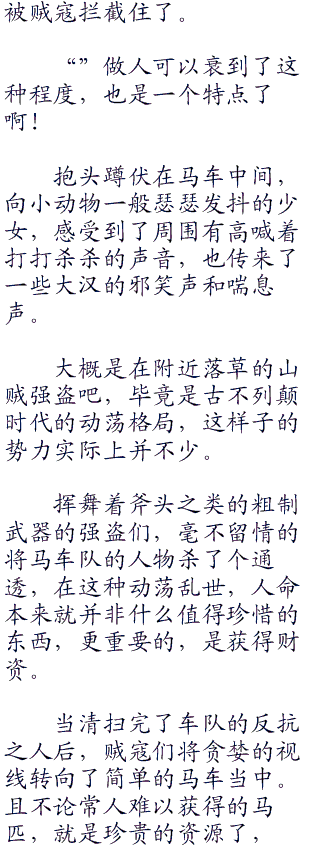 被贼寇拦截住了。
“”做人可以衰到了这
种程度，也是一个特点了
啊！
抱头蹲伏在马车中间，
向小动物一般瑟瑟发抖的少
女，感受到了周围有高喊着
打打杀杀的声音，也传来了
一些大汉的邪笑声和喘息
声。
大概是在附近落草的山
贼强盗吧，毕竟是古不列颠
时代的动荡格局，这样子的
势力实际上并不少。
挥舞着斧头之类的粗制
武器的强盗们，毫不留情的
将马车队的人物杀了个通
透，在这种动荡乱世，人命
本来就并非什么值得珍惜的
东西，更重要的，是获得财
资。
当清扫完了车队的反抗
之人后，贼寇们将贪婪的视
线转向了简单的马车当中。
且不论常人难以获得的马
匹，就是珍贵的资源了，